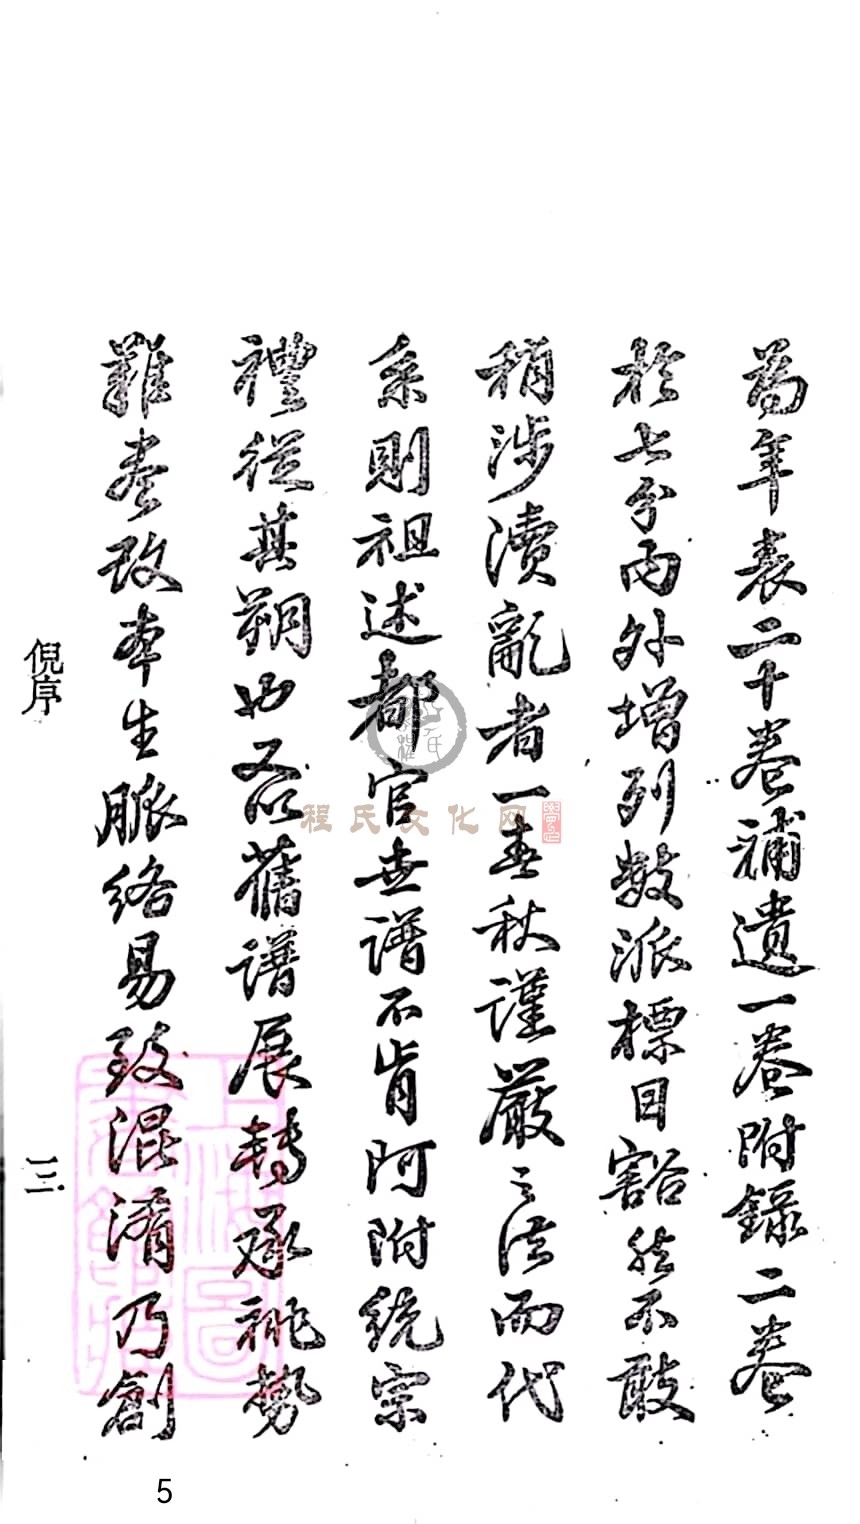 為年表二十卷補遺一卷附錄二卷
於七分內外增列數派標目豁然不敢
稍涉瀆亂者一春秋謹嚴之法而代
系則祖述都官世譜不肯阿附統宗
禮從其朔也又以舊譜展轉承祧勢
難盡改本生脈絡易致混淆乃創
倪序
三
程氏文化网
5